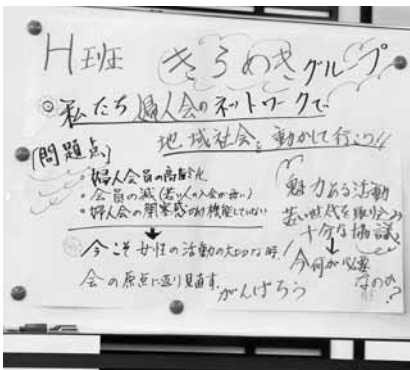 H班 きらめきグループ
◎私たち婦人会のネットワークで
地域社会を動かして行こう!!
[問題点]
・婦人会員の高齢化
・会員の減(若い人の入会が無い)
・婦人会の閉塞感があり機能していない
↓
今こそ女性の活動の大切な時!
会の原点に返り見直す
がんばろう
魅力ある活動
若い世代を取り込み
十分な協議
↓
今何が必要
なのか?